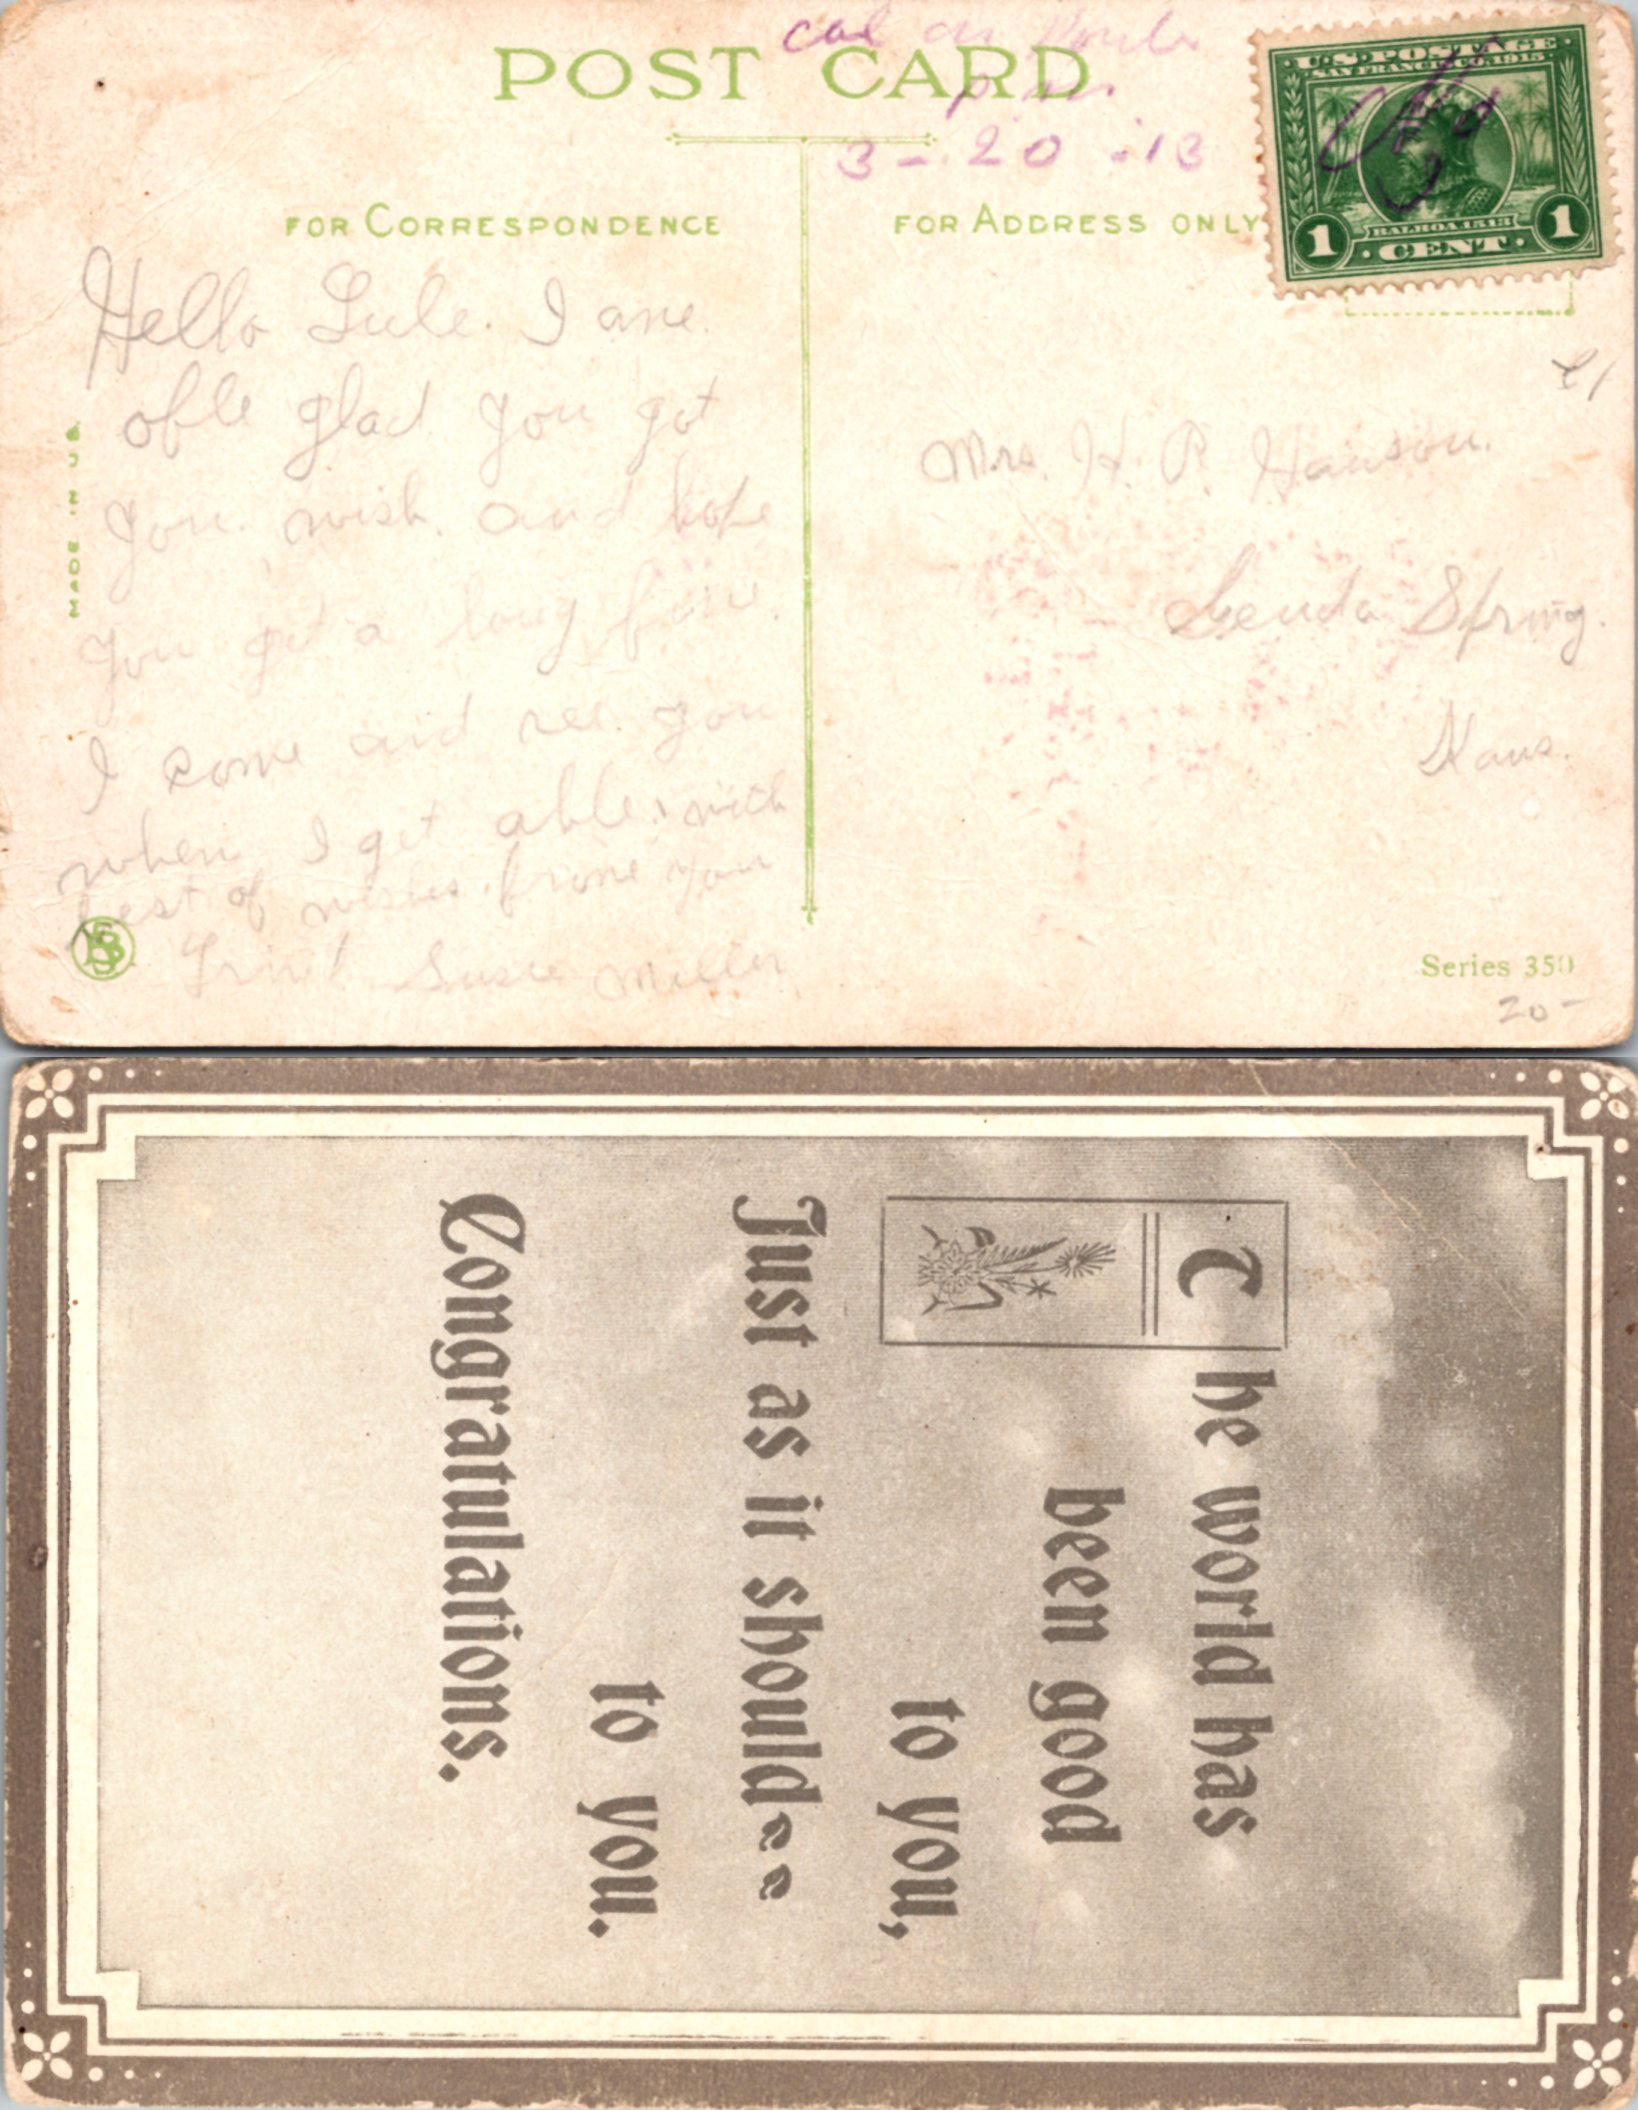 POST CARD
cal on Route
p m
3-20-13
U.S. POSTAGE
SAN FRANCISCO, 1915
BALBOA, 1513
1 CENT 1
FOR CORRESPONDENCE
FOR ADDRESS ONLY
MADE IN U.S.
Hello I ane
glad you got
you wish and hope
you get a long fine
I come and see you
when I get able with
best of wishes frome you
Susie Miller
Mrs. H. P. Hanson.
Geuda Spring
Kans.
Series 350
20-
The world has
been good
to you,
Just as it should
to you.
Congratulations.